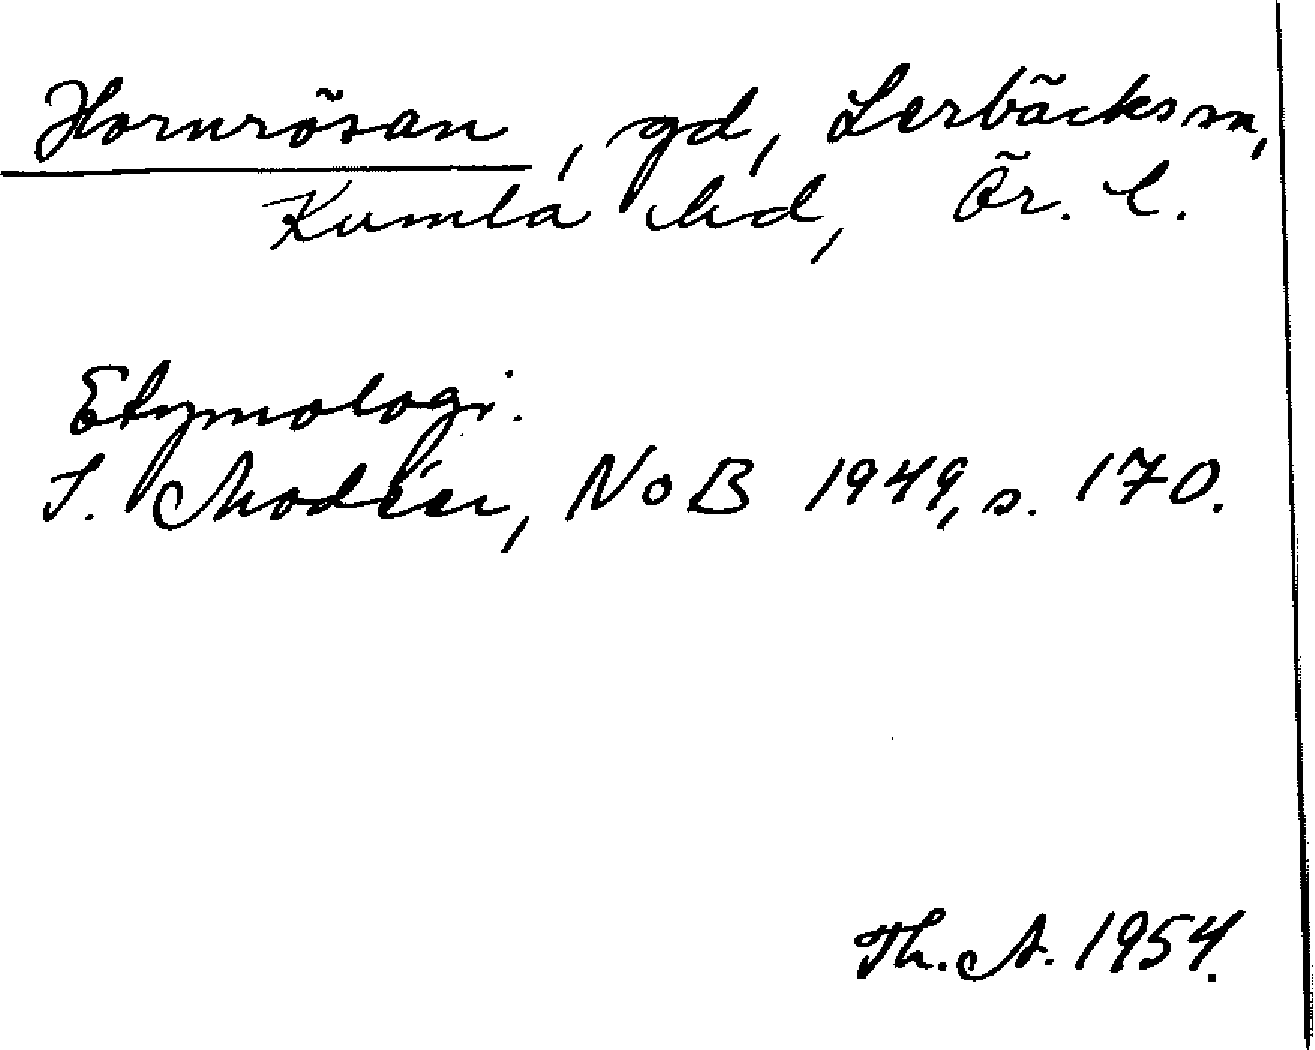 Hornrösan, gd, Lerbäcks sn,
Kumla hd, Ör. l.
Etymologi.
I. Modéer, NoB 1949, s. 170.
Th. A. 1954.